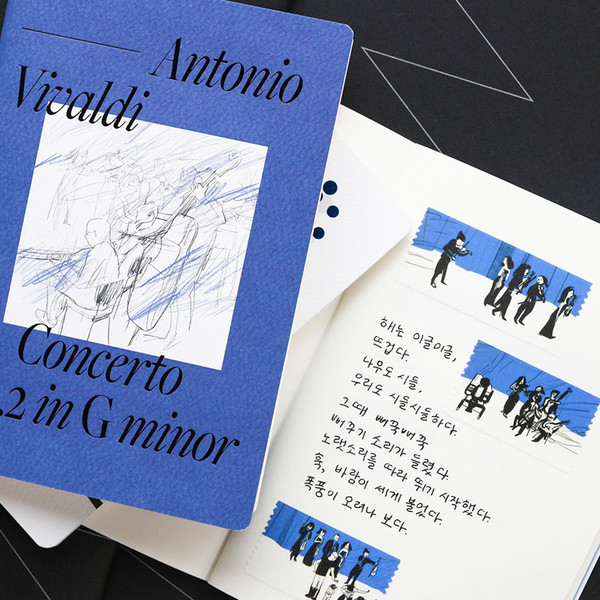 Antonio
Vivaldi
Concerto
.2 in G minor
해는 이글이글,
뜨겁다.
나무도 시들,
우리도 시들시들하다.
그때 뻐꾹뻐꾹
뻐꾸기 소리가 들렸다.
노랫소리를 따라 뛰기 시작했다.
훅, 바람이 세게 불었다.
폭풍이 오려나 보다.